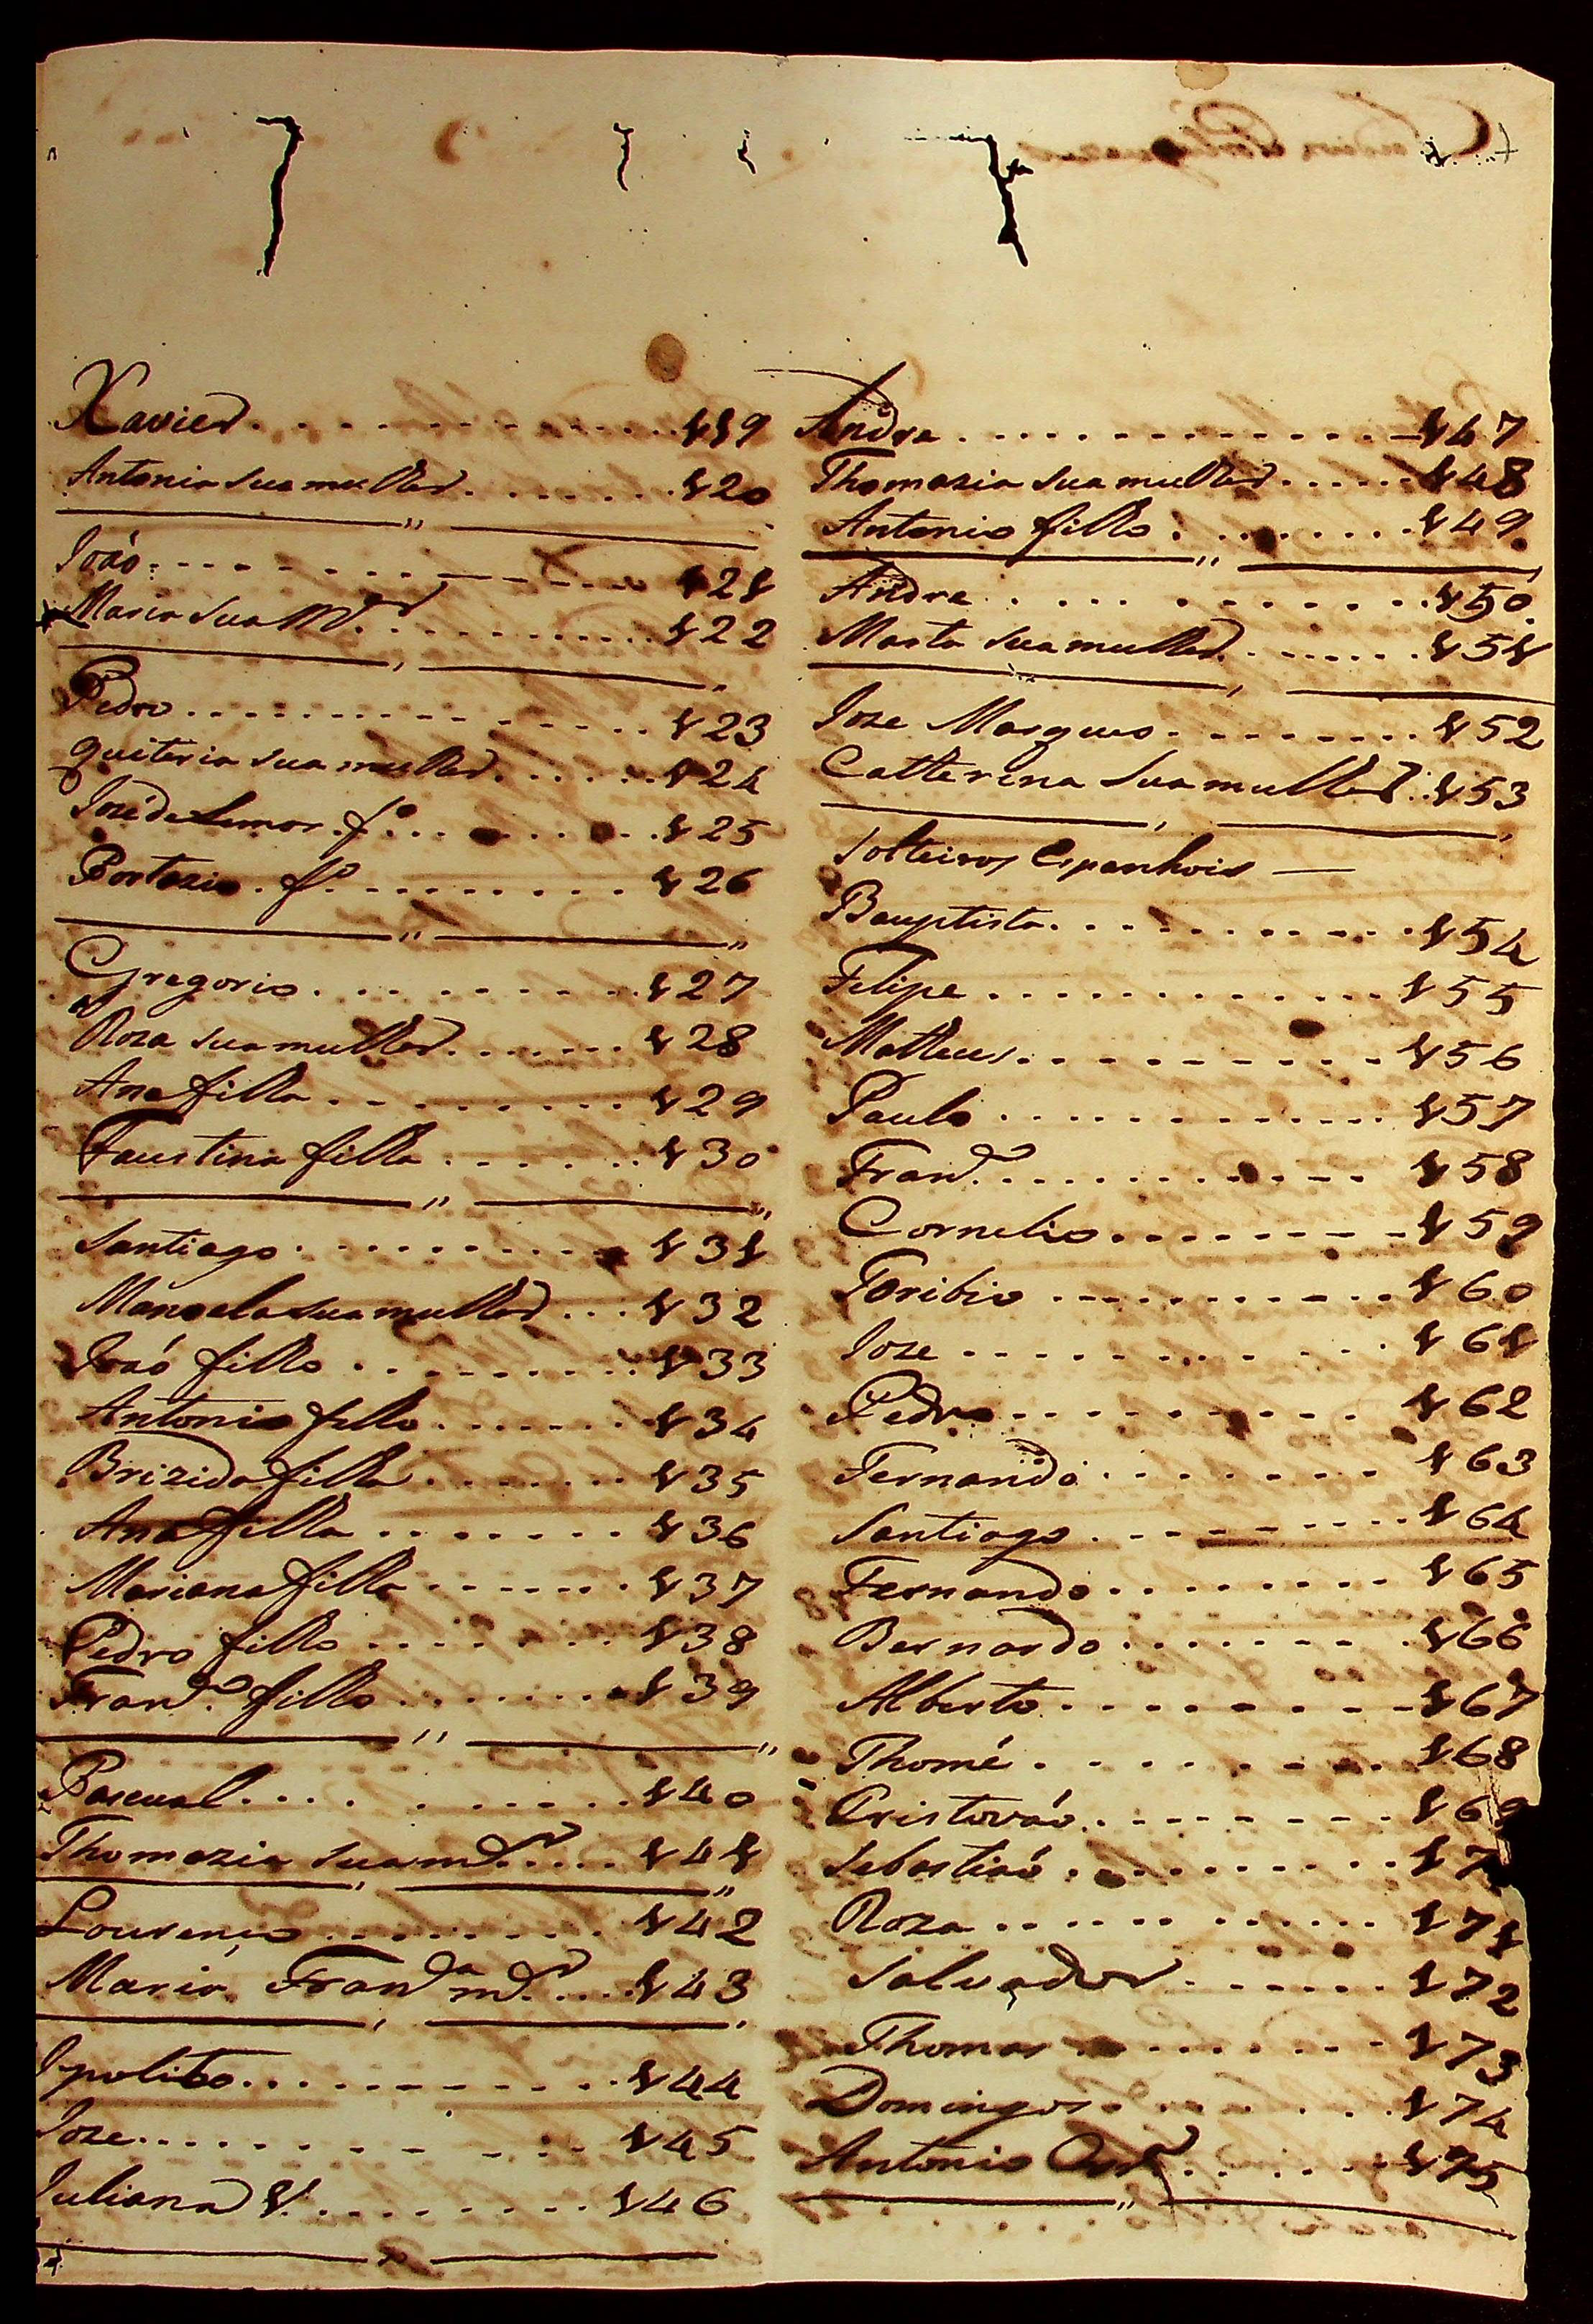 Xavier . . . . . . . . . . . 119
Antonia sua mulher . . . . . . . 120
João . . . . . . . . . . . 121
Maria sua M.er . . . . . . . . . 122
Pedro . . . . . . . . . . . 123
Quiteria sua mulher . . . . . . 124
José de Lemos . f.o . . . . . . . 125
Portazio . f.o . . . . . . . . . 126
Gregorio . . . . . . . . . 127
Roza sua mulher . . . . . . . 128
Ana filha . . . . . . . . . 129
Faustina filha . . . . . . . 130
Santiago . . . . . . . . . 131
Manoela sua mulher . . . 132
João filho . . . . . . . . . 133
Antonio filho . . . . . . . 134
Brizida filha . . . . . . . 135
Ana filha . . . . . . . . 136
Mariana filha . . . . . . . 137
Pedro filho . . . . . . . . 138
Fran.co filho . . . . . . . . 139
Pascual . . . . . . . . . . 140
Thomazia sua m.er . . . . 141
Lourenço . . . . . . . . . 142
Maria Fran.ca m.er . . . . 143
Ipolito . . . . . . . . . . 144
Joze . . . . . . . . . . . 145
Juliana V. . . . . . . . . 146
Andre . . . . . . . . . . . 147
Thomazia sua mulher . . . . . 148
Antonio filho . . . . . . . . 149
Andre . . . . . . . . . . . 150
Marta sua mulher . . . . . . . 151
Joze Marques . . . . . . . . 152
Catherina sua mulher . . 153
Solteiros Espanhois —
Bauptista . . . . . . . . . . 154
Felipe . . . . . . . . . . . 155
Matheus . . . . . . . . . . 156
Paulo . . . . . . . . . . . 157
Fran.co . . . . . . . . . . . 158
Cornelio . . . . . . . . . 159
Toribio . . . . . . . . . . 160
Joze . . . . . . . . . . . 161
Pedro . . . . . . . . . . 162
Fernando . . . . . . . . 163
Santiago . . . . . . . . . 164
Fernando . . . . . . . . 165
Bernardo . . . . . . . . 166
Alberto . . . . . . . . . 167
Thomé . . . . . . . . . 168
Cristovão . . . . . . . . 169
Sebastião . . . . . . . . . 17
Roza . . . . . . . . . . 171
Salvador . . . . . . . 172
Thomas . . . . . . . . 173
Domingos . . . . . . . . 174
Antonio . . . . . . 175